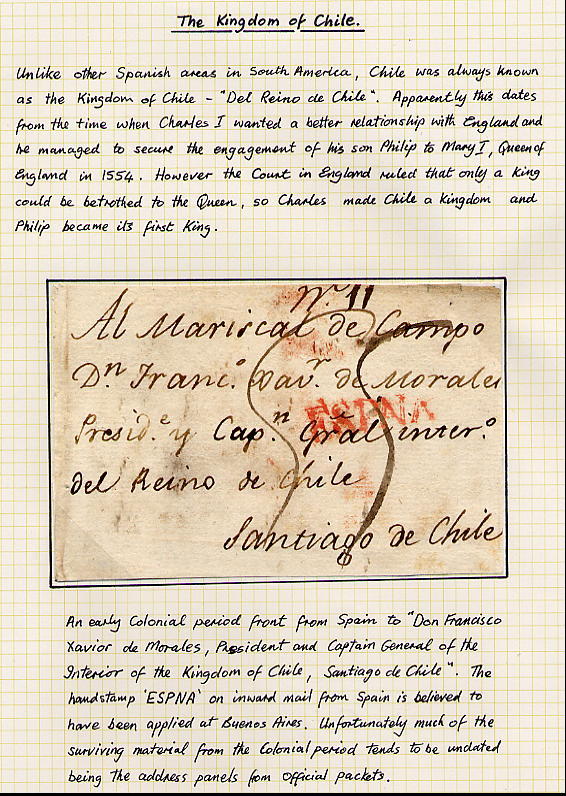 The Kingdom of Chile.
Unlike other Spanish areas in South America, Chile was always known
as the Kingdom of Chile - "Del Reino de Chile". Apparently this dates
from the time when Charles I wanted a better relationship with England and
he managed to secure the engagement of his son Philip to Mary I, Queen of
England in 1554. However the Court in England ruled that only a King
could be betrothed to the Queen, so Charles made Chile a Kingdom and
Philip became its first King.
Nº 11
Al Mariscal de Campo
Dn Francº. Xavr. de Morales
Presid.e y Cap.n Gral inter.º
ESPNA
del Reino de Chile
Santiago de Chile
An early Colonial period front from Spain to "Don Francisco
Xavior de Morales, President and Captain General of the
Interior of the Kingdom of Chile, Santiago de Chile". The
handstamp 'ESPNA' on inward mail from Spain is believed to
have been applied at Buenos Aires. Unfortunately much of the
surviving material from the Colonial period tends to be undated
being the address panels from official packets.